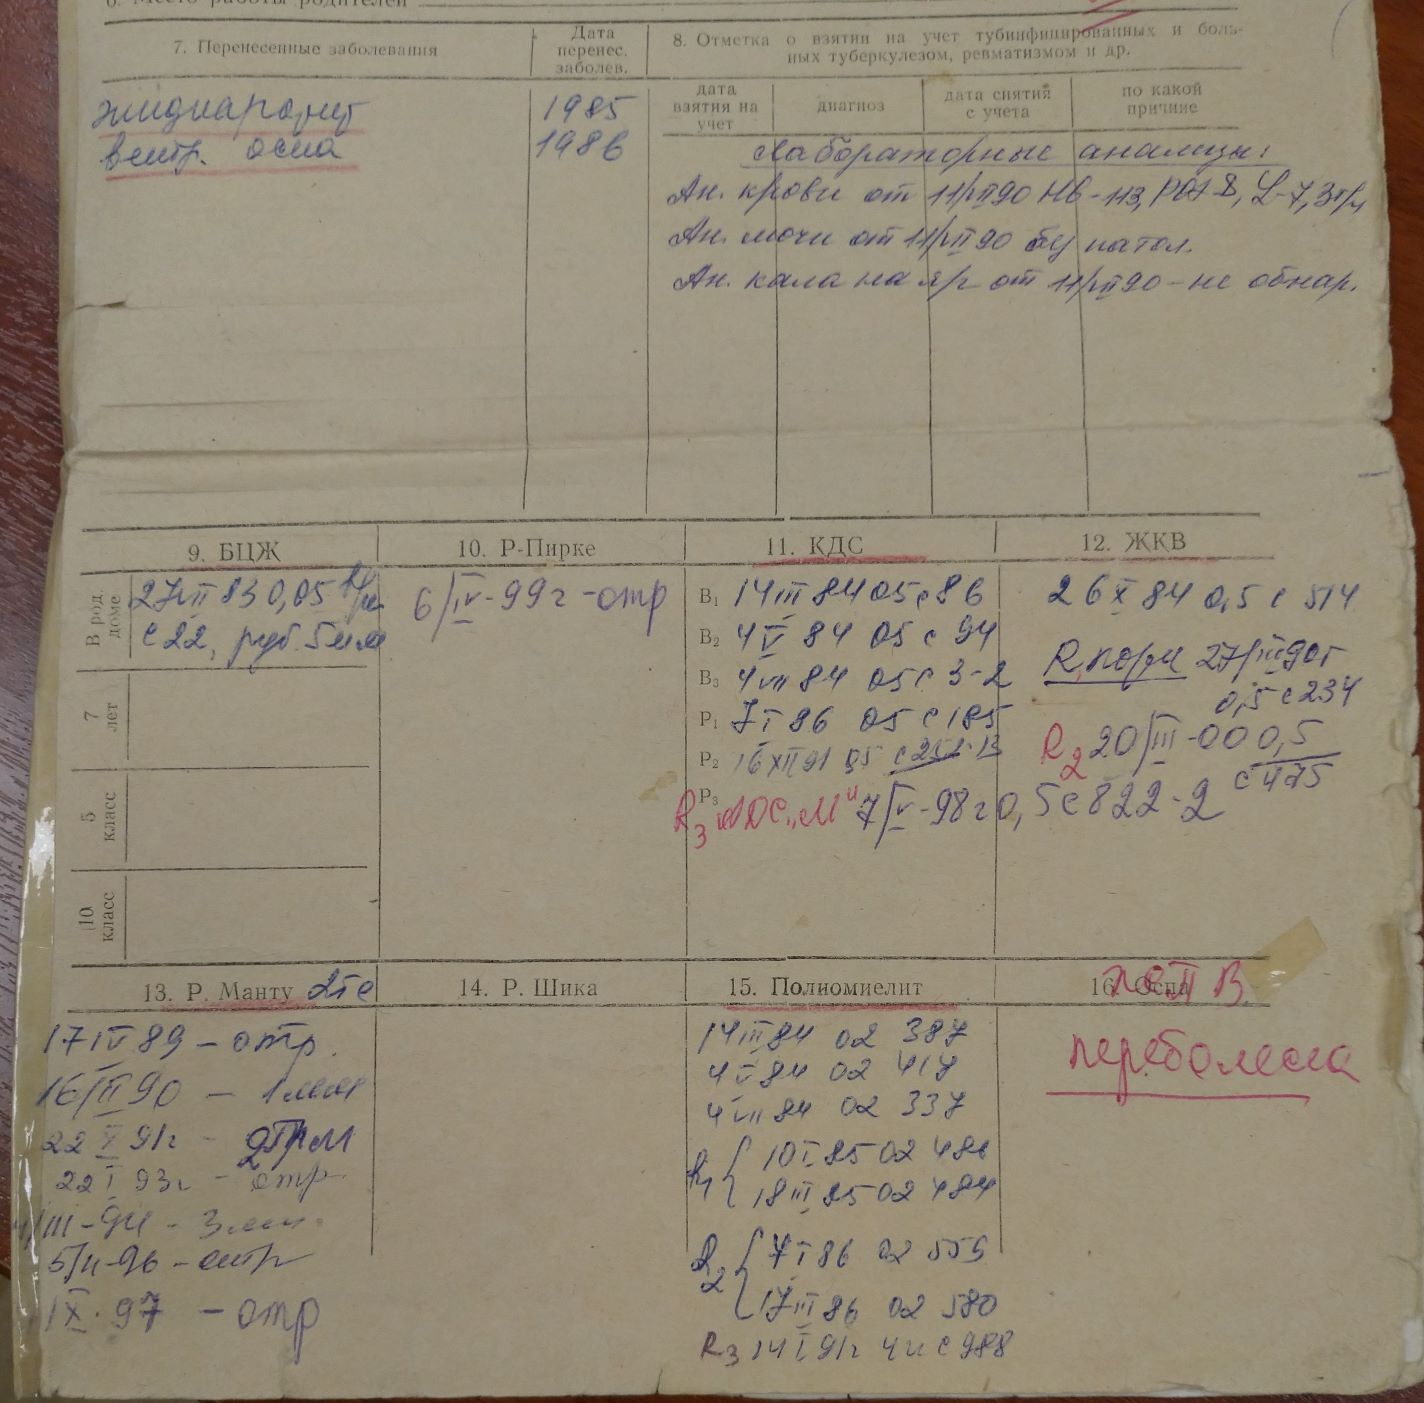 6. Место работы родителей
7. Перенесенные заболевания
Дата перенес. заболев.
8. Отметка о взятии на учет тубинфицированных и больных туберкулезом, ревматизмом и др.
дата взятия на учет
диагноз
дата снятия с учета
по какой причине
1985
ветр. оспа 1986
Лабораторные анализы:
Ан. крови от 11/VII 90 Нв - 113, РОЭ-8, L-7,3
Ан. мочи от 11/VII 90 б/патол.
Ан. кала на я/г от 11/VII 90 - не обнар.
9. БЦЖ
10. Р-Пирке
11. КДС
12. ЖКВ
В род. доме
27 VII 83 0,05 в/к
с 22, руб. 5мм
7 лет
5 класс
10 класс
6/IV-99г - отр
В₁ 14 III 84 05 с 86
В₂ 4 V 84 05 с 94
В₃ 4 VII 84 05 с 3-2
Р₁ 7 I 86 05 с 185
Р₂ 16 XII 91 05
Р₃
R₃ АДС„М" 7/IV-98г 0,5 с 822-2
26 X 84 0,5 с 514
27/III 90г
0,5 с 234
R₂ 20/III-00 0,5
с 475
13. Р. Манту 2те
14. Р. Шика
15. Полиомиелит
16. Оспа
17 IV 89 - отр.
16/III 90 - 1мм
22 X 91г -
22 I 93г - отр
III-94 - 3мм
- отр
IX-97 - отр
14 III 84 02 387
4 V 84 02 417
4 VII 84 02 337
R₁ 10 I 85 02 486
18 III 85 02 484
R₂ 7 I 86 02 555
17 III 86 02 580
R₃ 14 I 91г 4к с 988
переболела